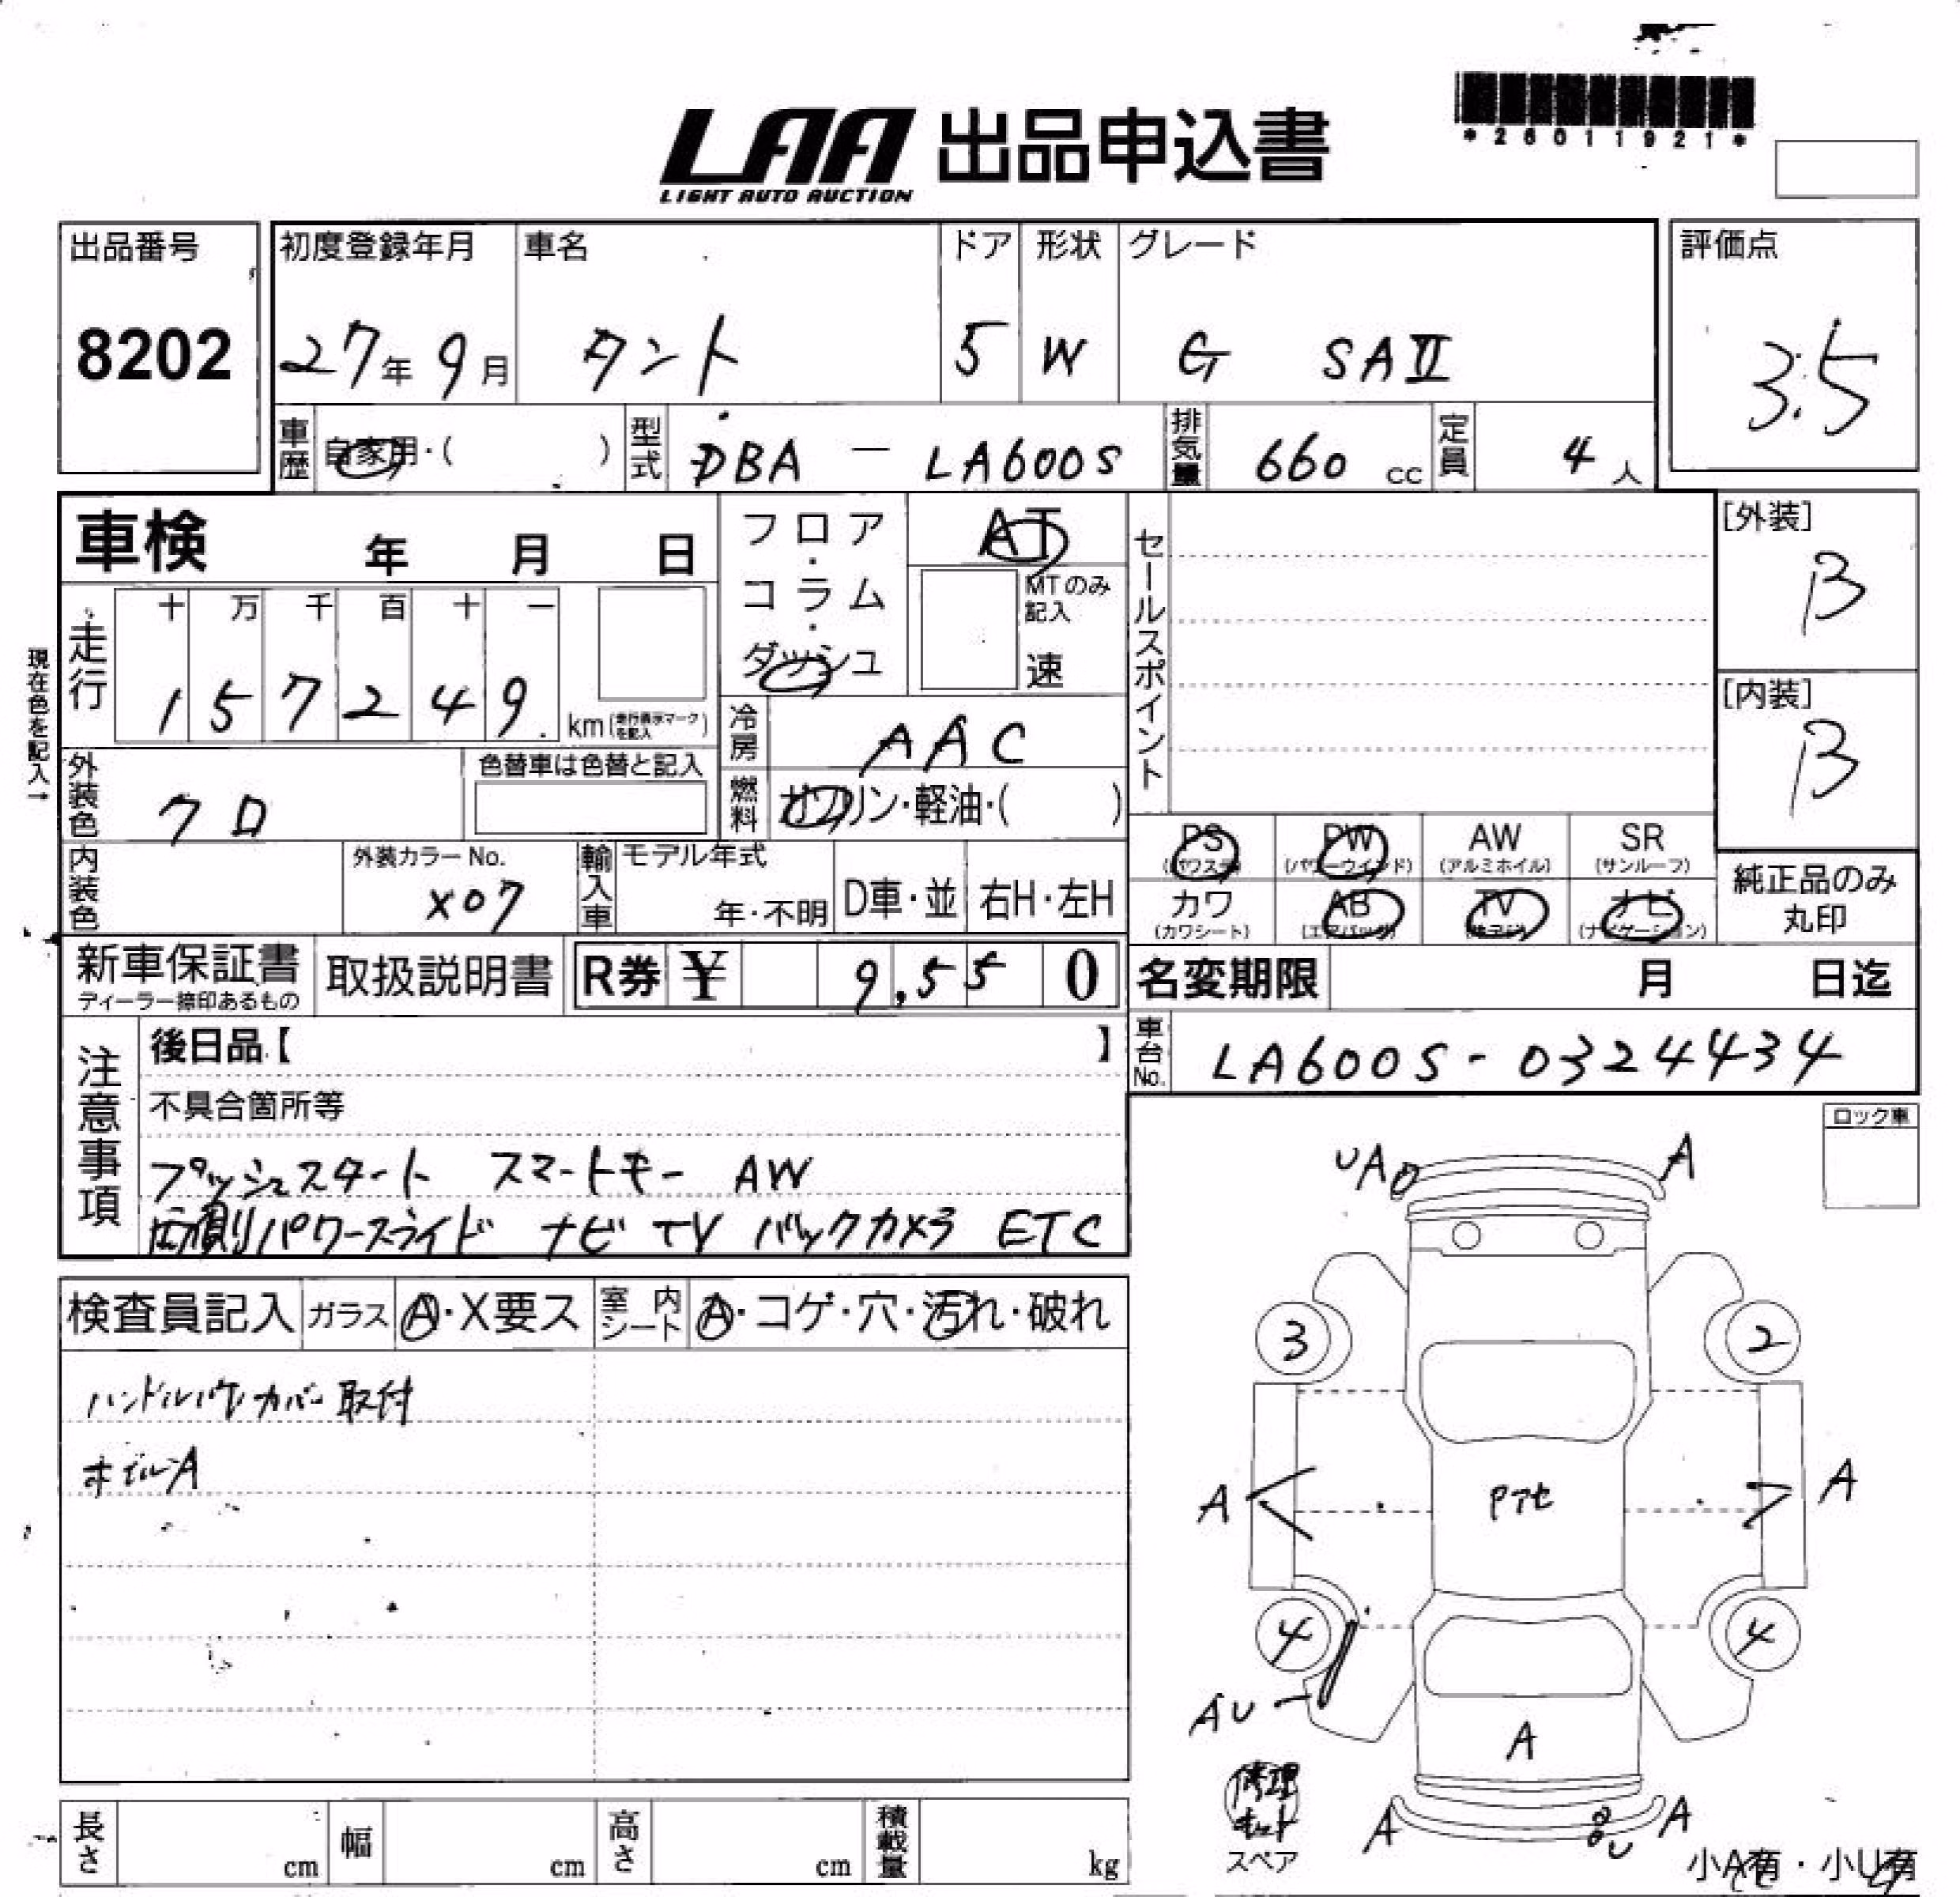 LAA 出品申込書
LIGHT AUTO AUCTION
*26011921*
出品番号 初度登録年月 車名 ドア 形状 グレード 評価点
8202 27年 9月 タント 5 W G SAⅡ 3.5
車歴 自家用・( ) 型式 DBA - LA600S 排気量 660 cc 定員 4 人
車検 年 月 日
フロア・コラム・ダッシュ
AT
MTのみ記入
速
セールスポイント
[外装]
B
[内装]
B
現在色を記入→
走行 十 万 千 百 十 一
1 5 7 2 4 9. km(走行表示マークを記入)
冷房 AAC
外装色 クロ 色替車は色替と記入
燃料 ガソリン・軽油・( )
内装色 外装カラーNo. X07 輸入車 モデル年式 年・不明 D車・並 右H・左H
PS (パワステ) PW (パワーウインド) AW (アルミホイル) SR (サンルーフ)
カワ (カワシート) AB (エアバッグ) TV (テレビ) ナビ (ナビゲーション)
純正品のみ丸印
新車保証書 ディーラー捺印あるもの 取扱説明書 R券 ¥ 9,55 0
名変期限 月 日迄
車台No. LA600S-0324434
注意事項 後日品【 】
不具合箇所等
プッシュスタート スマートキー AW
両側パワースライド ナビ TV バックカメラ ETC
ロック車
検査員記入 ガラス A・X要ス 室内シート A・コゲ・穴・汚れ・破れ
取付
ホイールA
UA A
3 2
A A
Pアセ
4 4
AU
A
修理キット
スペア
A U A
小A有・小U有
長さ cm 幅 cm 高さ cm 積載量 kg